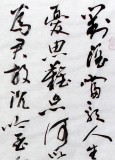 對酒當歌人生
憂思難忘何以
為君故沉吟至